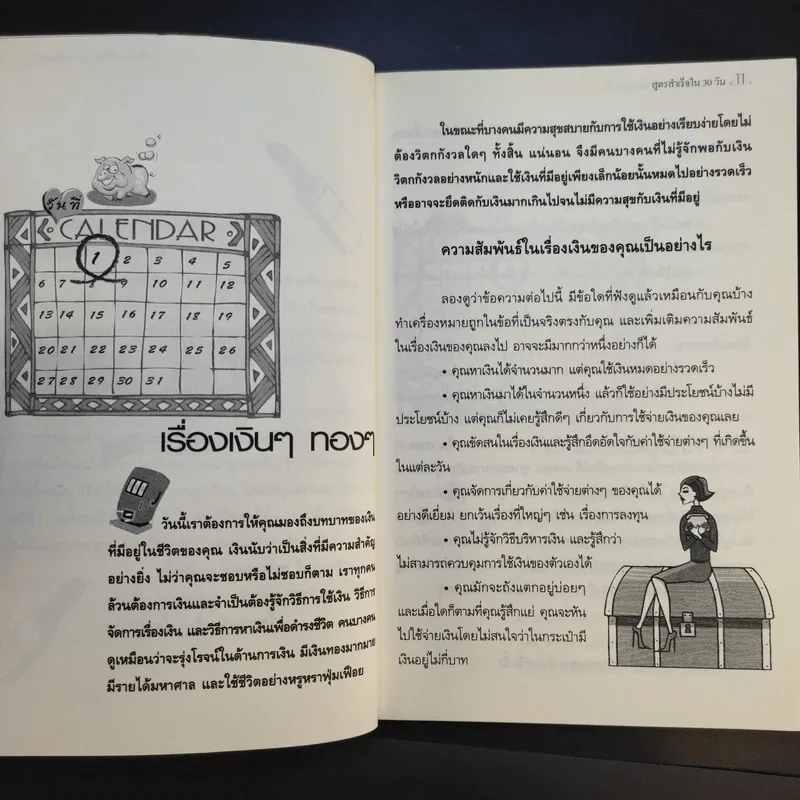 วันที่
CALENDAR
1 2 3 4 5
6 7 8 9 10 11 12
13 14 15 16 17 18 19
20 21 22 23 24 25 26
27 28 29 30 31
เรื่องเงินๆ ทองๆ
วันนี้เราต้องการให้คุณมองถึงบทบาทของเงิน
ที่มีอยู่ในชีวิตของคุณ เงินนับว่าเป็นสิ่งที่มีความสำคัญ
อย่างยิ่ง ไม่ว่าคุณจะชอบหรือไม่ชอบก็ตาม เราทุกคน
ล้วนต้องการเงินและจำเป็นต้องรู้จักวิธีการใช้เงิน วิธีการ
จัดการเรื่องเงิน และวิธีการหาเงินเพื่อดำรงชีวิต คนบางคน
ดูเหมือนว่าจะรุ่งโรจน์ในด้านการเงิน มีเงินทองมากมาย
มีรายได้มหาศาล และใช้ชีวิตอย่างหรูหราฟุ่มเฟือย
สูตรสำเร็จใน 30 วัน . 11 .
ในขณะที่บางคนมีความสุขสบายกับการใช้เงินอย่างเรียบง่ายโดยไม่
ต้องวิตกกังวลใดๆ ทั้งสิ้น แน่นอน จึงมีคนบางคนที่ไม่รู้จักพอกับเงิน
วิตกกังวลอย่างหนักและใช้เงินที่มีอยู่เพียงเล็กน้อยนั้นหมดไปอย่างรวดเร็ว
หรืออาจจะยึดติดกับเงินมากเกินไปจนไม่มีความสุขกับเงินที่มีอยู่
ความสัมพันธ์ในเรื่องเงินของคุณเป็นอย่างไร
ลองดูว่าข้อความต่อไปนี้ มีข้อใดที่ฟังดูแล้วเหมือนกับคุณบ้าง
ทำเครื่องหมายถูกในข้อที่เป็นจริงตรงกับคุณ และเพิ่มเติมความสัมพันธ์
ในเรื่องเงินของคุณลงไป อาจจะมีมากกว่าหนึ่งอย่างก็ได้
• คุณหาเงินได้จำนวนมาก แต่คุณใช้เงินหมดอย่างรวดเร็ว
• คุณหาเงินมาได้ในจำนวนหนึ่ง แล้วก็ใช้อย่างมีประโยชน์บ้างไม่มี
ประโยชน์บ้าง แต่คุณก็ไม่เคยรู้สึกดีๆ เกี่ยวกับการใช้จ่ายเงินของคุณเลย
• คุณขัดสนในเรื่องเงินและรู้สึกอึดอัดใจกับค่าใช้จ่ายต่างๆ ที่เกิดขึ้น
ในแต่ละวัน
• คุณจัดการเกี่ยวกับค่าใช้จ่ายต่างๆ ของคุณได้
อย่างดีเยี่ยม ยกเว้นเรื่องที่ใหญ่ๆ เช่น เรื่องการลงทุน
• คุณไม่รู้จักวิธีบริหารเงิน และรู้สึกว่า
ไม่สามารถควบคุมการใช้เงินของตัวเองได้
• คุณมักจะถังแตกอยู่บ่อยๆ
และเมื่อใดก็ตามที่คุณรู้สึกแย่ คุณจะหัน
ไปใช้จ่ายเงินโดยไม่สนใจว่าในกระเป๋ามี
เงินอยู่ไม่กี่บาท